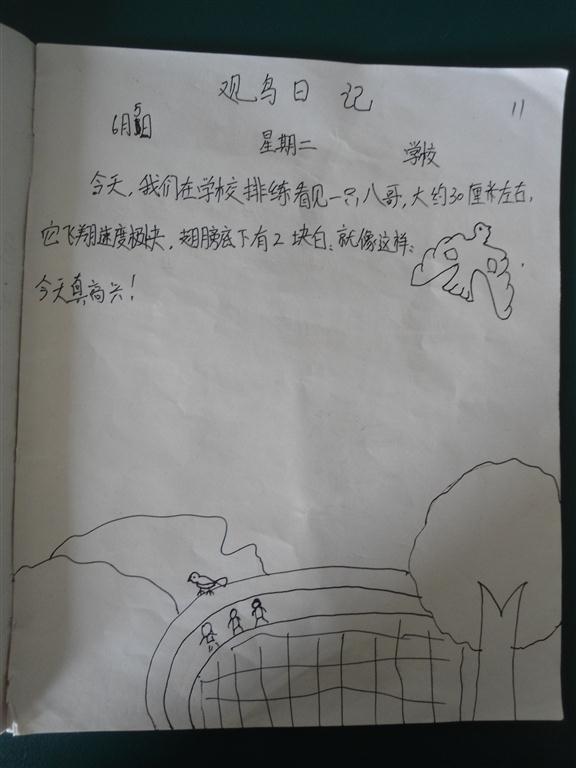 观鸟日记
11
6月5日 星期二 学校
今天,我们在学校排练看见一只八哥,大约30厘米左右,
它飞翔速度极快,翅膀底下有2块白,就像这样:
今天真高兴!